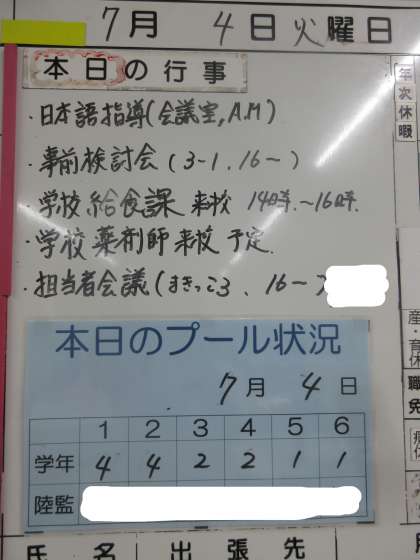 7月 4日 火曜日
本日の行事
・日本語指導(会議室,A.M)
・事前検討会(3-1、16〜)
・学校給食課 来校 14時〜16時
・学校薬剤師来校予定
・担当者会議(すきっこ3、16〜)
年次休暇
本日のプール状況
7月 4日
1 2 3 4 5 6
学年 4 4 2 2 1 1
陸監
産・育休
職免
氏名 出張先